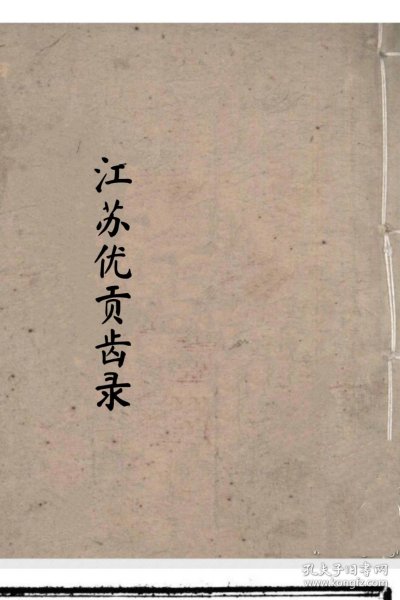 江苏优贡齿录
孔夫子旧书网
www.kongfz.com